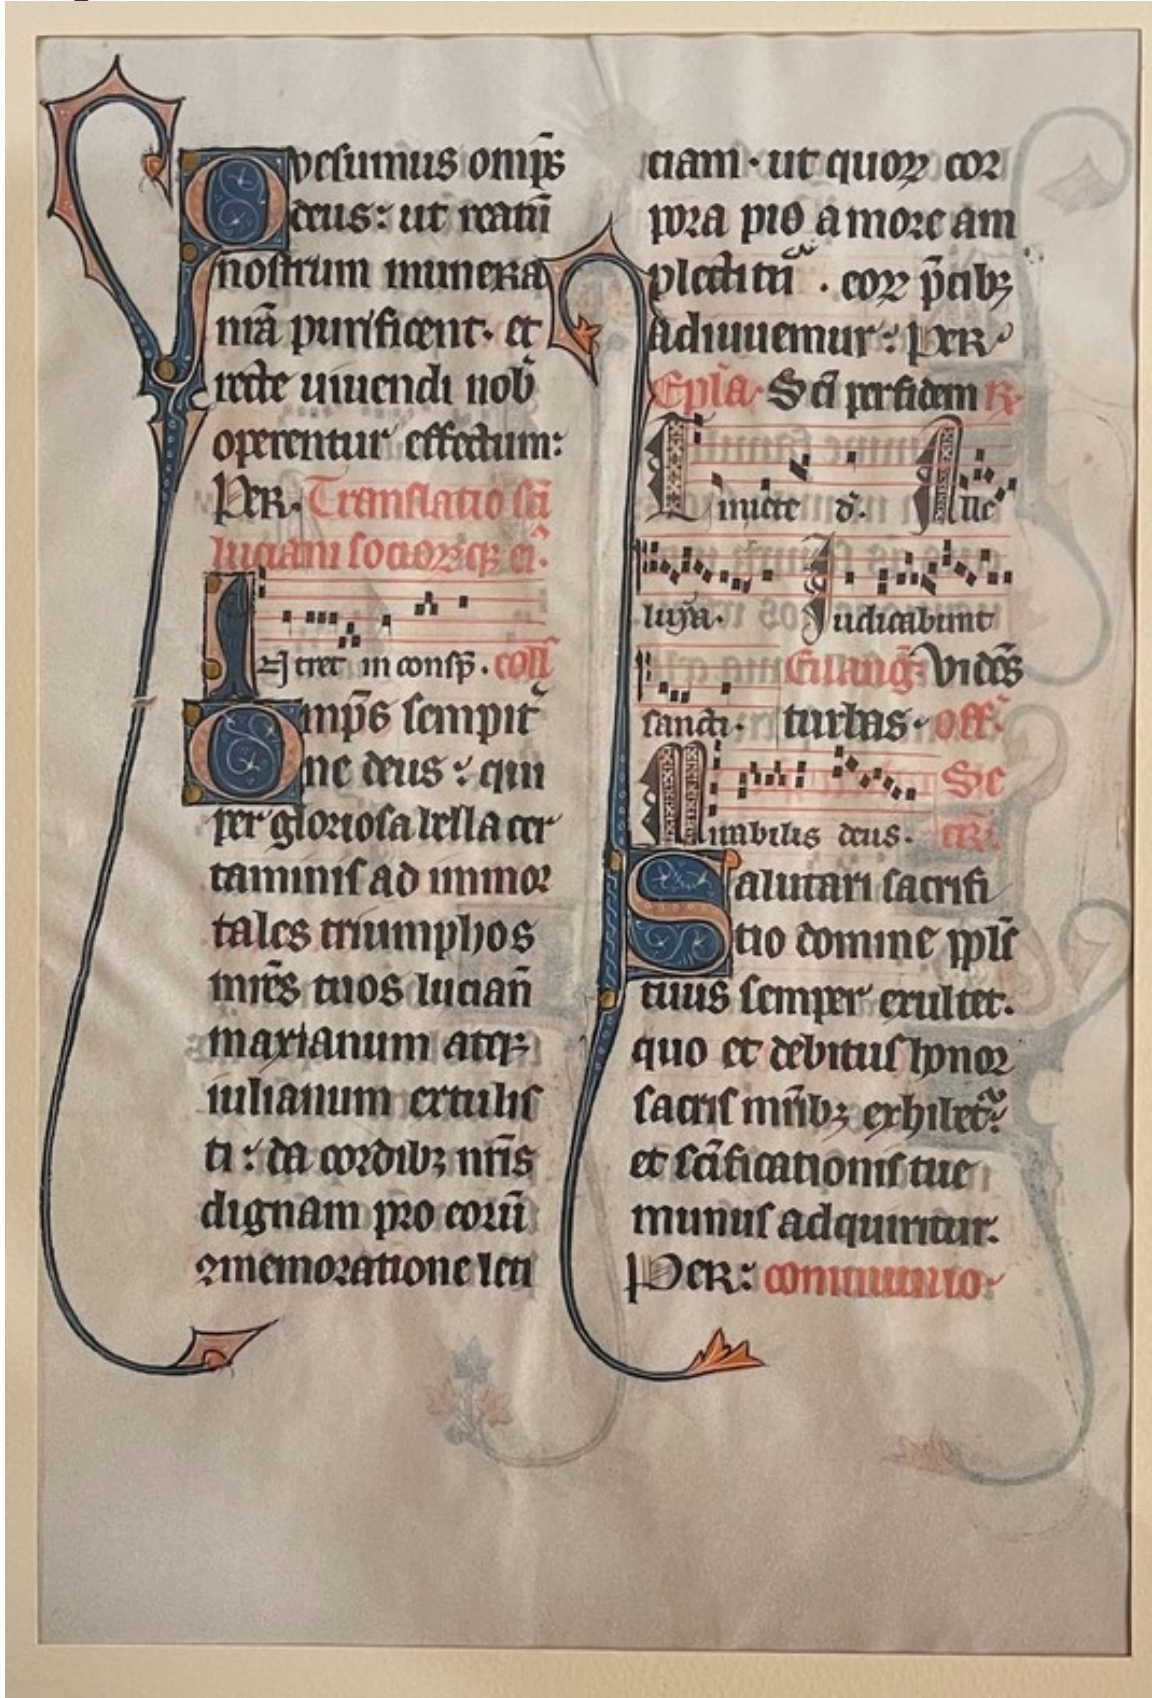 Quesumus omp̄s
deus: ut reatū
nostrum munera
nr̄a purificent· et
recte uiuendi nob̄
operentur effectum:
Per· Translatio sc̄i
luciani sociorꝝqꝫ ei᷒·
Intret in consp̄. coll̄
Omp̄s sempit̄
ne deus: qui
per gloriosa bella cer
taminis ad immor
tales triumphos
mr̄es tuos lucian̄
maxianum atqꝫ
iulianum extulis
ti: da cordibꝫ nr̄is
dignam pro eorū
ꝯmemoratione leti
ciam· ut quoꝝ cor
pora pio amore am
plectitū . eoꝝ p̄cibꝫ
adiuuemur: Per
Epl̄a· Sc̄i per fidem R̄·
Timete d̄· Alle
luya· Iudicabunt
sancti· Euanḡ· Vidēs turbas· off̄·
Mirabilis deus· Secr̄·
Salutari sacrifi
tio domine ppl̄s
tuus semper exultet·
quo et debitus honor
sacris mr̄ibꝫ exhibet᷑
et sc̄ificationis tue
munus adquiritur·
Per: communio·